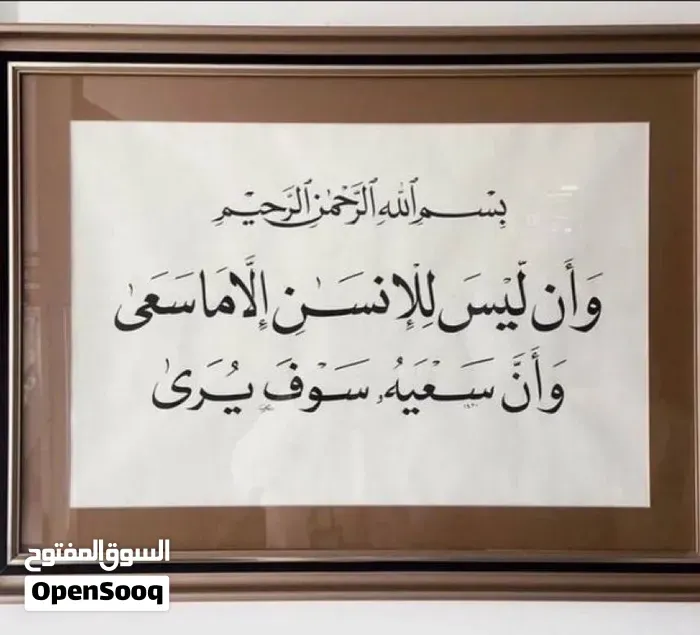 بِسْمِ ٱللَّهِ ٱلرَّحْمَٰنِ ٱلرَّحِيمِ
وَأَن لَّيْسَ لِلْإِنسَٰنِ إِلَّا مَا سَعَىٰ
وَأَنَّ سَعْيَهُۥ سَوْفَ يُرَىٰ
السوق المفتوح
OpenSooq